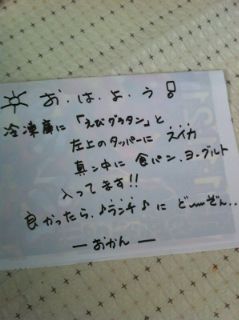 お・は・よ・う!
冷凍庫に「えびグラタン」と
左上のタッパーに スイカ
真ン中に 食パン、ヨーグルト
入ってます!!
良かったら、♪ランチ♪に ど〜ぞん..
ーおかんー